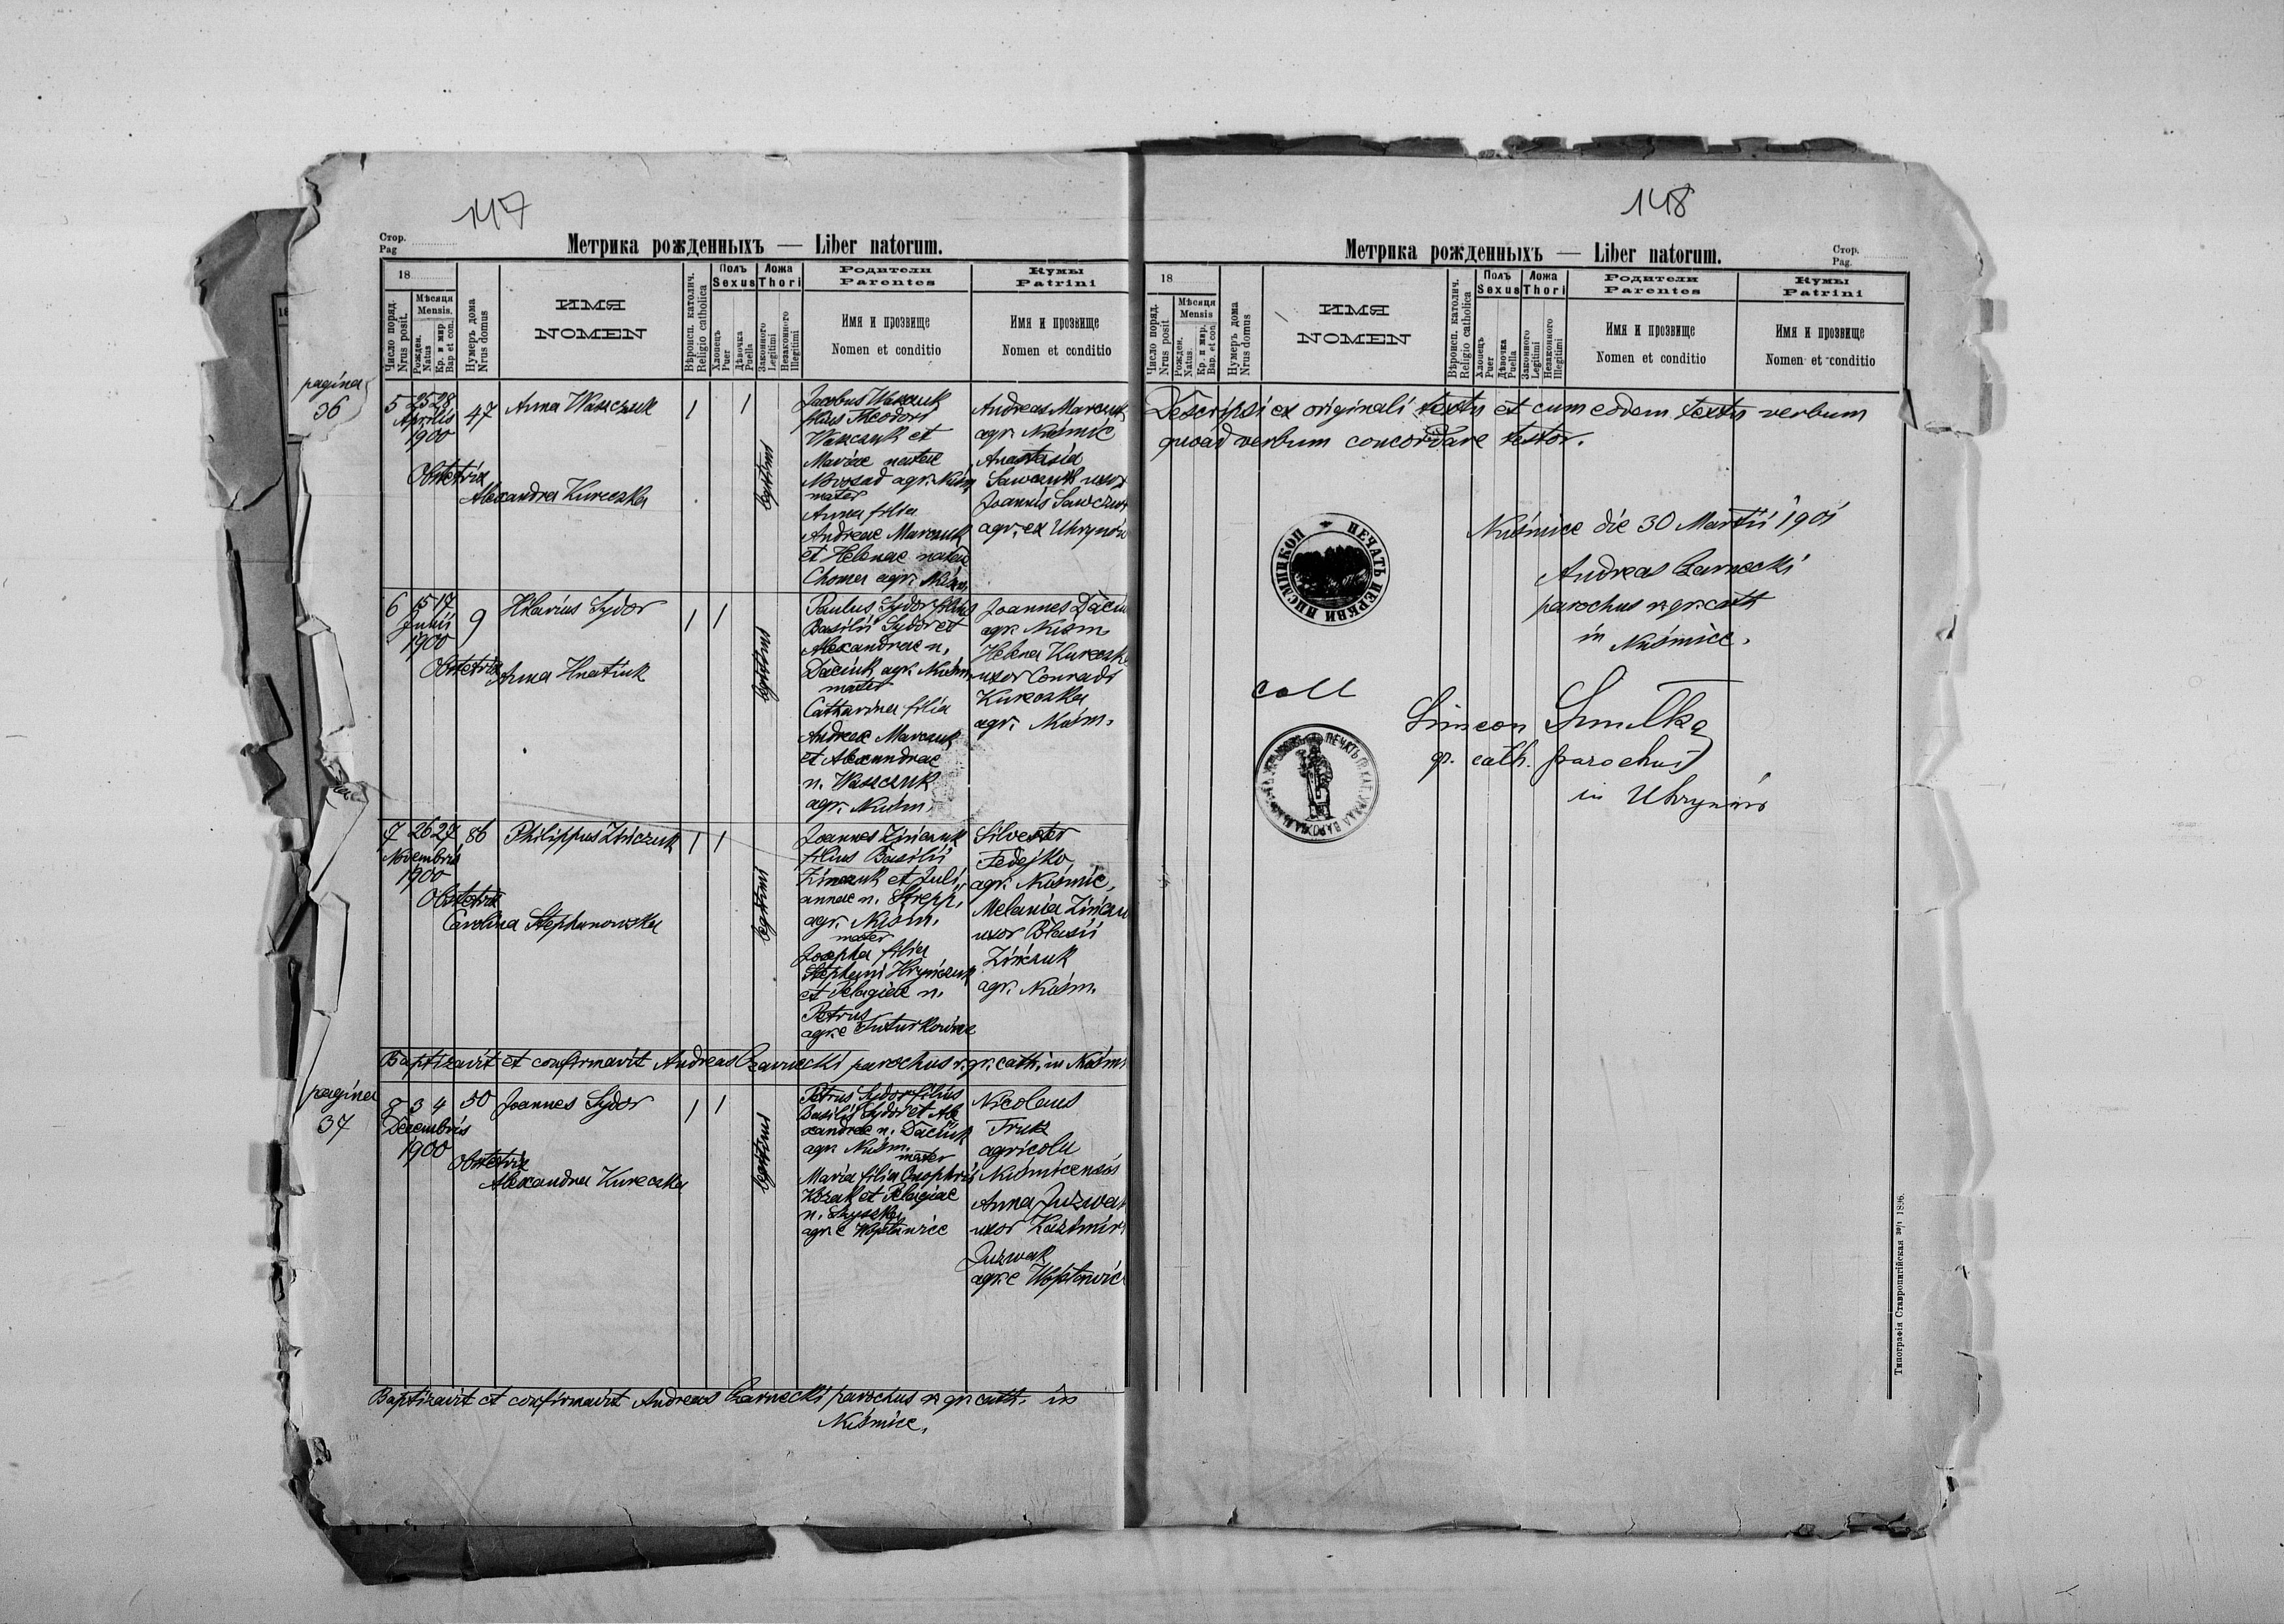 147
Стор.
Pag
Метрика рожденныхъ — Liber natorum.
18
Число поряд.
Nrus posit.
Мѣсяця
Mensis.
Рожден.
Natus
Кр. и мѵр.
Bap et con.
Нумеръ дома
Nrus domus
ИМЯ
NOMEN
Вѣроисп. католич.
Religio catholica
Полъ
Sexus
Хлопецъ
Puer
Дѣвочка
Puella
Ложа
Thori
Законного
Legitimi
Незаконного
Illegitimi
Родители
Parentes
Имя и прозвище
Nomen et conditio
Кумы
Patrini
Имя и прозвище
Nomen et conditio
pagina
36
5 25 28 47 Anna Waszczuk 1 1
Aprilis
1900
Obstetrix
Alexandra Kureczka
legitimi
Jacobus Waszczuk
filius Theodori
Waszczuk et
Mariae natae
Nowosad agr. Nuśm
mater
Anna filia
Andreae Marczuk
et Helenae natae
Choma agr. Nuśm.
Andreas Marczuk
agr. Nuśmic
Anastasia
Sawczuk uxor
Joannis Sawczuk
agr. ex Uhrynów
6 15 17 9 Hilarius Sydor 1 1
Julii
1900
Obstetrix
Anna Hnatiuk
legitimi
Paulus Sydor filius
Basilii Sydor et
Alexandrae n.
Daciuk agr. Nuśm
mater
Catharina filia
Andreae Marczuk
et Alexandrae
n. Waszczuk
agr. Nuśm.
Joannes Daciu
agr. Nuśm
Helena Kureczk
uxor Conradi
Kureczka
agr. Nuśm.
7 26 27 86 Philippus Zińczuk 1 1
Novembris
1900
Obstetrix
Carolina Stephanowska
legitimi
Joannes Zińczuk
filius Basilii
Zińczuk et Juli
annae n.
agr. Nuśm.
mater
Josepha filia
Stephani Hryńczuk
et Pelagiae n.
Petrus
agr. e Tuturkowice
Silvester
Fedejko
agr. Nuśmic,
Melania Zińczu
uxor Blasii
Zińczuk
agr. Nuśm.
Baptizavit et confirmavit Andreas Czarnecki parochus r. gr. cath. in Nuśmi
pagina
37
8 3 4 50 Joannes Sydor 1 1
Decembris
1900
Obstetrix
Alexandra Kureczka
legitimi
Petrus Sydor filius
Basilii Sydor et Ale
xandrae n. Daciuk
agr. Nuśm.
mater
Maria filia Onophrii
Kozak et Pelagiae
n.
agr. e Wojsławice
Nicolaus
Truk
agricola
Nuśmicensis
Anna Juzwak
uxor Kazimiri
Juzwak
agr. e Wojsławice
Baptizavit et confirmavit Andreas Czarnecki parochus r. gr. cath. in
Nuśmice.
148
Метрика рожденныхъ — Liber natorum.
Стор.
Pag.
18
Число поряд.
Nrus posit
Мѣсяця
Mensis
Рожден.
Natus.
Кр. и мѵр.
Bap. et con.
Нумеръ дома
Nrus domus
ИМЯ
NOMEN
Вѣроисп. католич.
Religio catholica
Полъ
Sexus
Хлопецъ
Puer
Дѣвочка
Puella
Ложа
Thori
Законного
Legitimi
Незаконного
Illegitimi
Родители
Parentes
Имя и прозвище
Nomen et conditio
Кумы
Patrini
Имя и прозвище
Nomen et conditio
Descripsi ex originali textu et cum eodem textu verbum
quoad verbum concordare testor.
Nuśmice die 30 Martii 1901
Andreas Czarnecki
parochus r. gr. cath
in Nuśmice.
ПЕЧАТЬ ЦЕРКВИ
coll
Simeon Smulka
gr. cath. parochus
in Uhrynów
ПЕЧАТЬ
Типографія Ставропигійская 1896.